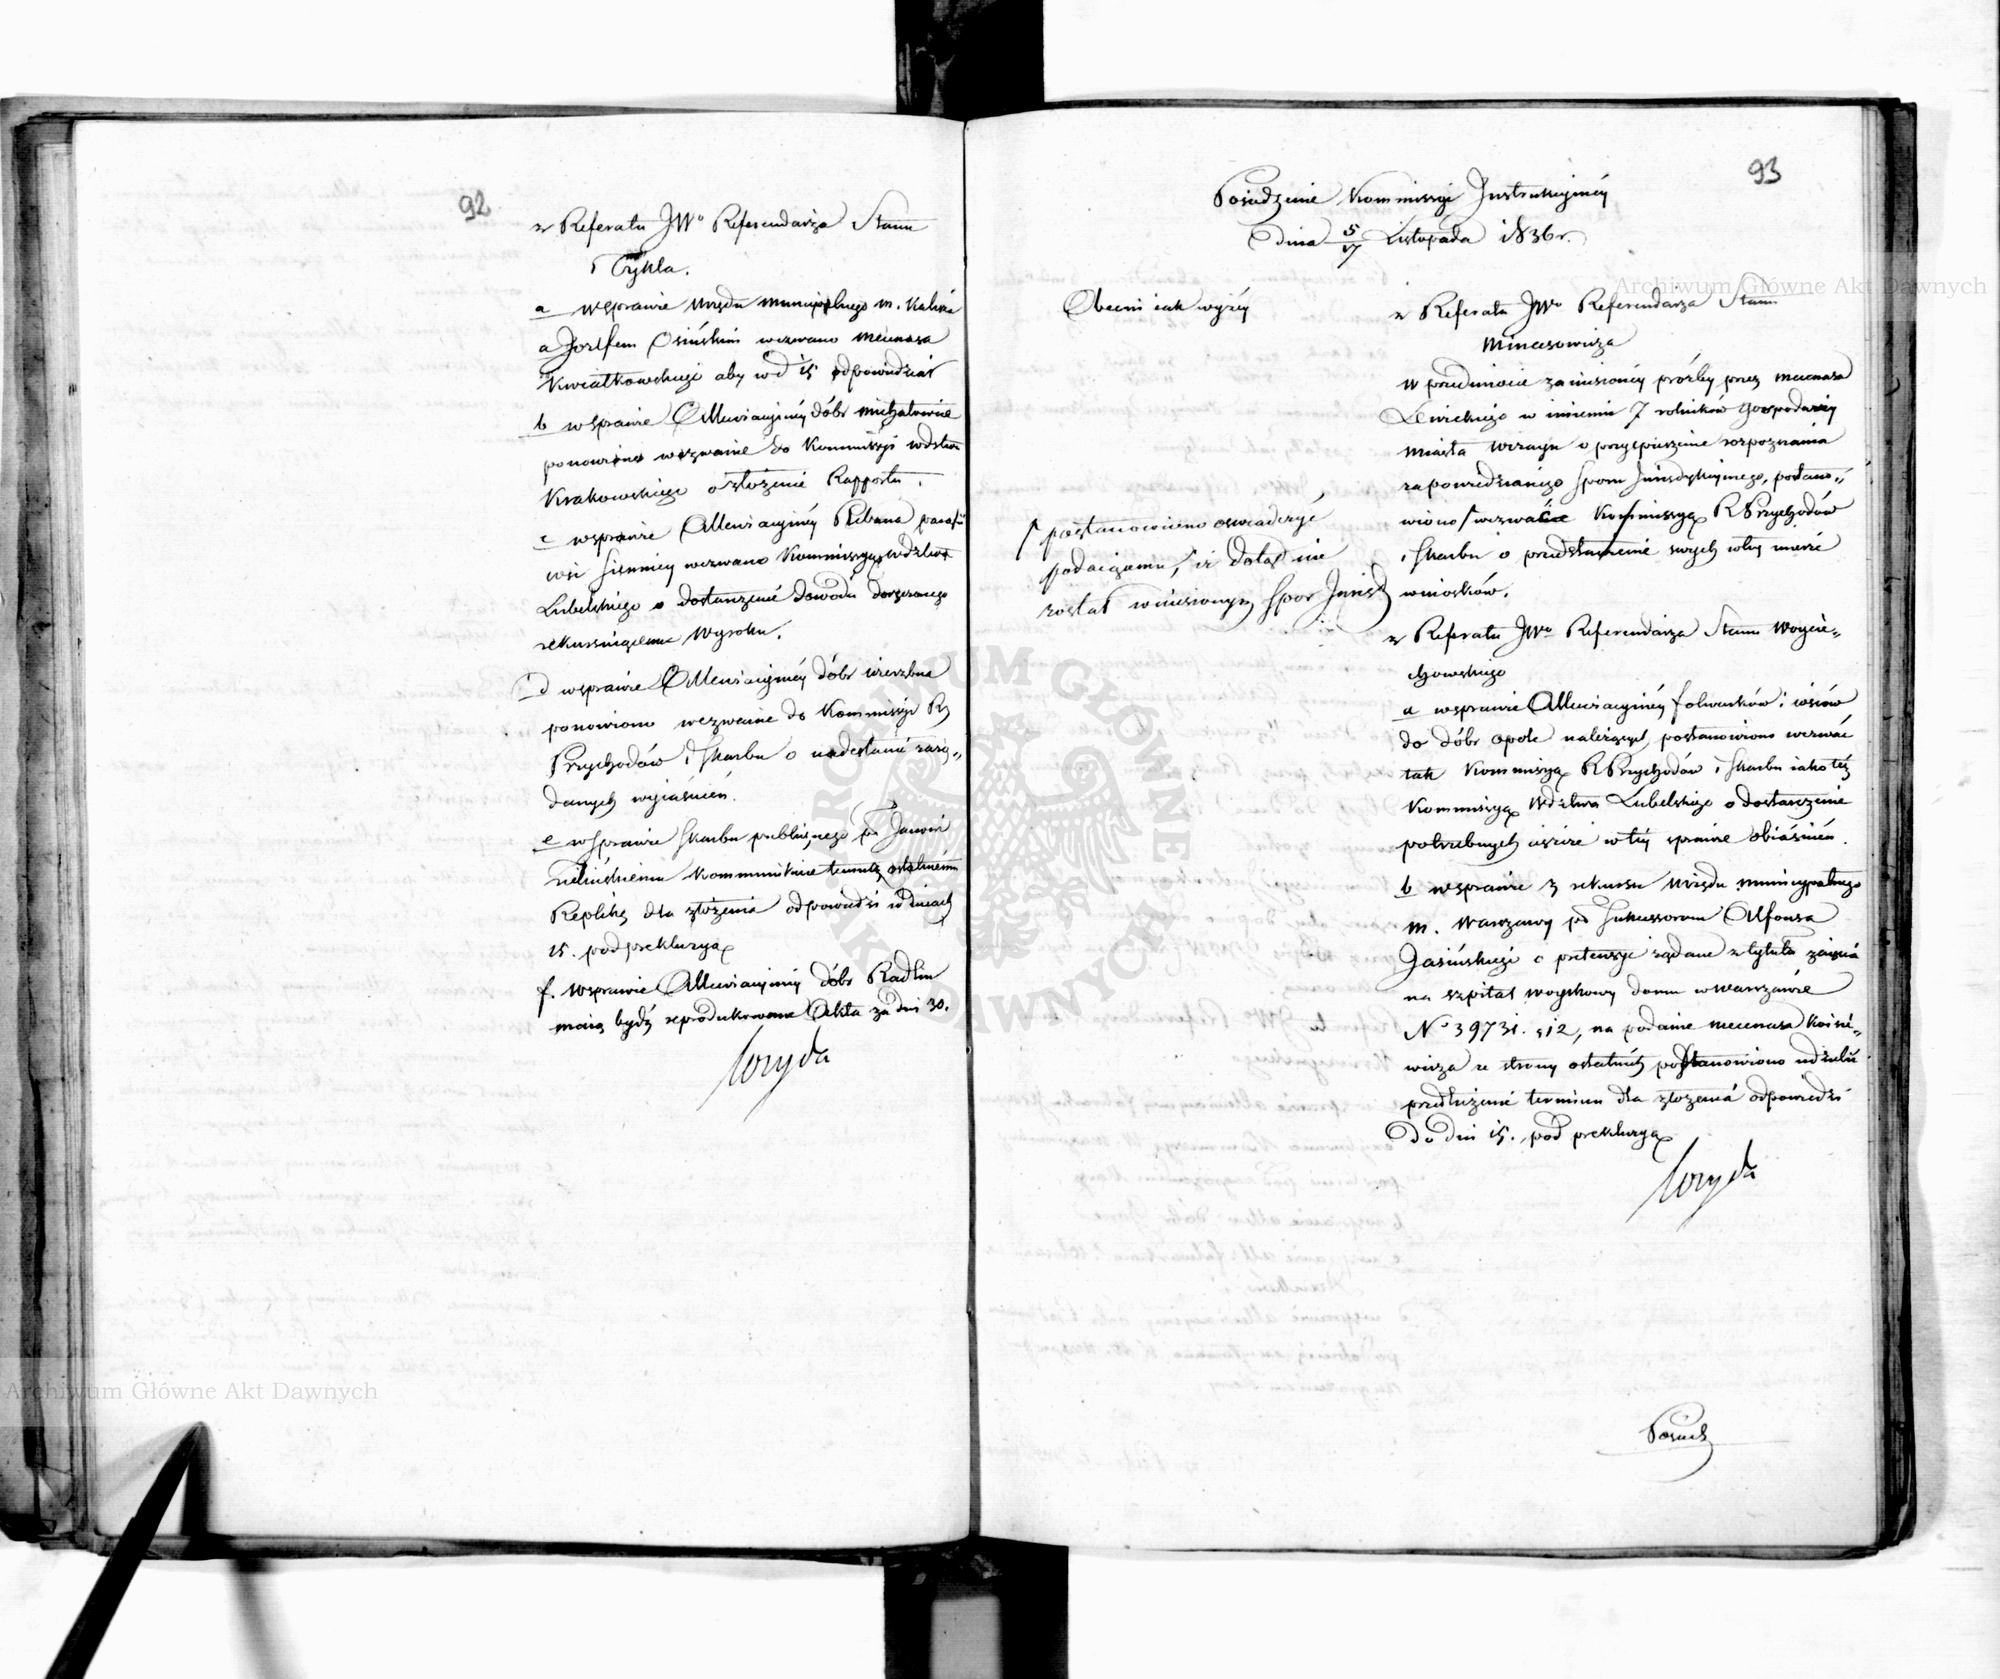 92
z Referatu JWo Referendarza Stanu
Tykla.
a w sprawie Urzędu Municypalnego m. Kalisza
a Jozefem Osińskim wezwano mecenasa
Kwiatkowskiego aby w d 15 odpowiedział
b w sprawie Allewiacyjnéy dóbr Michałowice
ponowiono wezwanie do Kommissyi Wdztwa
Krakowskiego o złożenie Rapportu.
c w sprawie Allewiacyjnéy Plebana parafii
wsi Siennicy wezwano Kommissyą Wdztwa
Lubelskiego o dostarczenie dowodu doręczonego
rekursującemu Wyroku.
d w sprawie Allewiacyjnéy dóbr Wierzbna
ponowiono wezwanie do Kommissyi Rz
Przychodów i Skarbu o nadesłanie zażą„
danych wyiaśnień.
e w sprawie Skarbu publicznego po Janowi
Kommunikuie temuż ostatniemu
Replikę dla złożenia odpowiedzi w dniach
15. pod prekluzyą
f. w sprawie Allewiacyjnéy dóbr Radlin
maią bydź reprodukowane Akta za dni 30.
93
Posiedzenie Kommissyi Instrukcyinéy
dnia 5/17 Listopada 1836 r.
Obecni iak wyżéy
z Referatu JWo Referendarza Stanu
Minasowicza
w przedmiocie zaniesionéy próźby przez mecenasa
Lewickiego w imieniu 7 rolników gospodarzy
miasta o przyspieszenie rozpoznania
zapowiedzianego Sporu Jurisdykcyjnego, postano„
wiono wezwać Kommissyą R Przychodów
i Skarbu o przedstawienie swych w téy mierze
wniosków.
postanowiono oświadczyć
podaiącemu, iż dotąd nie
został wniesionym Spor Jurisd
z Referatu JWo Referendarza Stanu Woycie„
chowskiego
a w sprawie Allewiacyjnéy folwarków i wsiów
do dóbr Opole należących, postanowiono wezwać
tak Kommissyą R Przychodów i Skarbu iako też
Kommissyą Wdztwa Lubelskiego o dostarczenie
potrzebnych ieszcze w téy sprawie obiaśnień.
b w sprawie z rekursu Urzędu Municypalnego
m. Warszawy po Sukcessorom Alfonsa
Jasińskiego o pretensye żądane z tytułu zaięcia
na szpital woyskowy domu w Warszawie
No 39731. 912, na podanie mecenasa Kosie„
wicza ze strony ostatnich postanowiono udzielić
przedłużenie terminu dla złożenia odpowiedzi
do dni 15. pod prekluzyą
Posied
Archiwum Główne Akt Dawnych
Archiwum Główne Akt Dawnych
ARCHIWUM GŁÓWNE AKT DAWNYCH